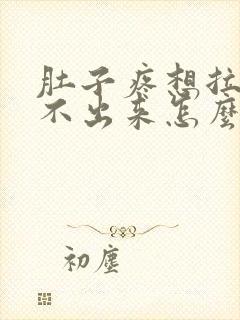 肚子疼想拉
不出来怎麼
初塵